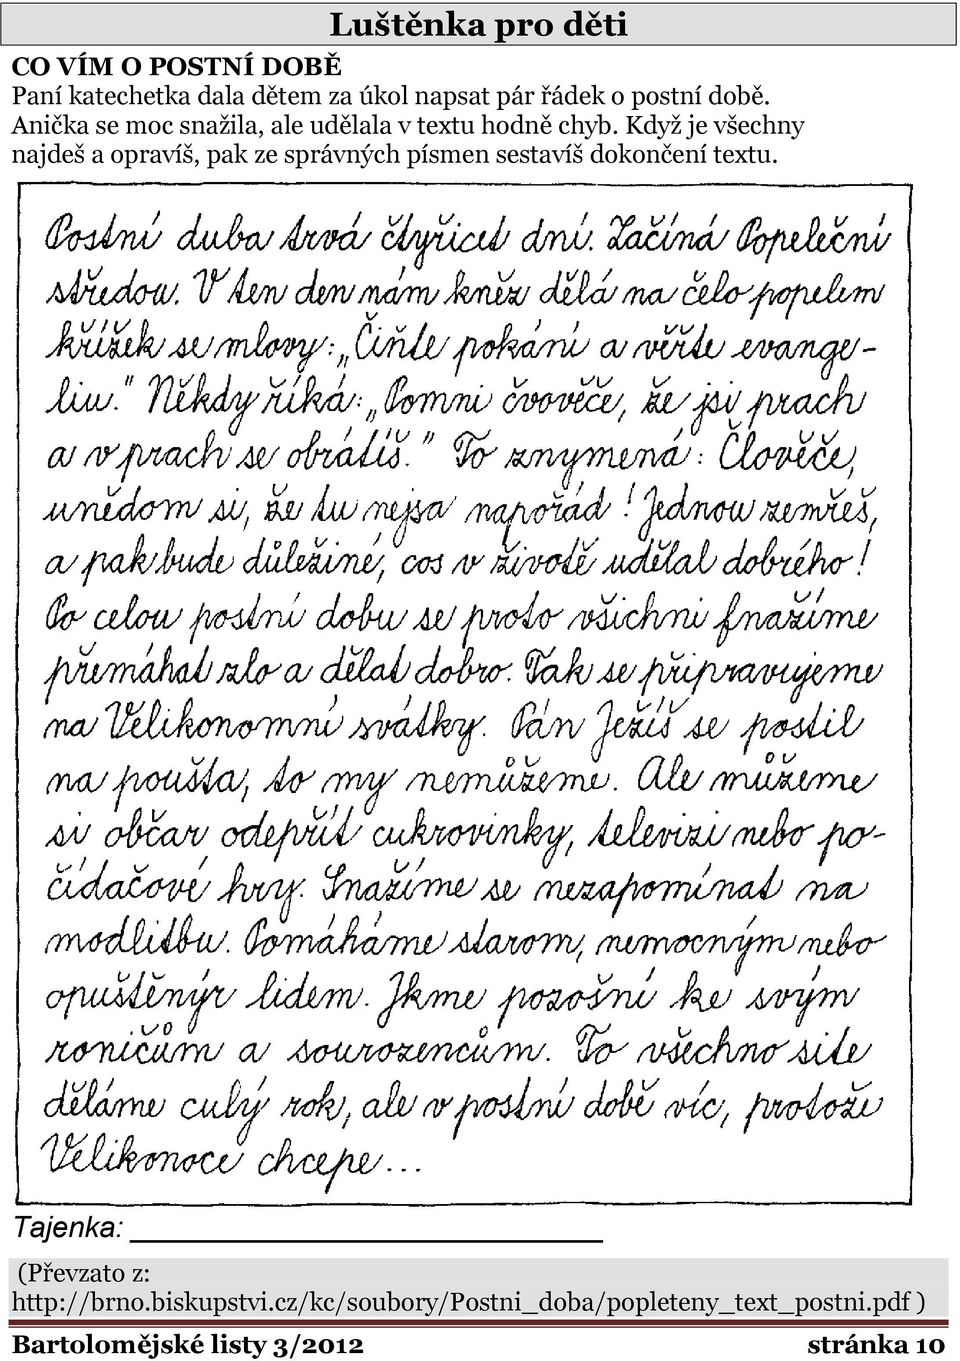 Luštěnka pro děti
CO VÍM O POSTNÍ DOBĚ
Paní katechetka dala dětem za úkol napsat pár řádek o postní době.
Anička se moc snažila, ale udělala v textu hodně chyb. Když je všechny
najdeš a opravíš, pak ze správných písmen sestavíš dokončení textu.
Postní duba trvá čtyřicet dní. Začíná Popeleční
středou. V ten den nám kněz dělá na čelo popelem
křížek se mlovy: „Čiňte pokání a věřte evange-
liu." Někdy říká: „Pomni čvověče, že jsi prach
a v prach se obrátíš." To znymená: Člověče,
unědom si, že tu nejsa napořád! Jednou zemřeš,
a pak bude důležiné, cos v životě udělal dobrého!
Po celou postní dobu se proto všichni fnažíme
přemáhat zlo a dělat dobro. Tak se připravujeme
na Velikonomní svátky. Pán Ježíš se postil
na poušta, to my nemůžeme. Ale můžeme
si občar odepřít cukrovinky, televizi nebo po-
čídačové hry. Snažíme se nezapomínat na
modlitbu. Pomáháme starom, nemocným nebo
opuštěnýr lidem. Jkme pozošní ke svým
roničům a sourozencům. To všechno site
děláme culý rok, ale v postní době víc, protože
Velikonoce chcepe...
Tajenka:
(Převzato z:
http://brno.biskupstvi.cz/kc/soubory/Postni_doba/popleteny_text_postni.pdf )
Bartolomějské listy 3/2012 stránka 10